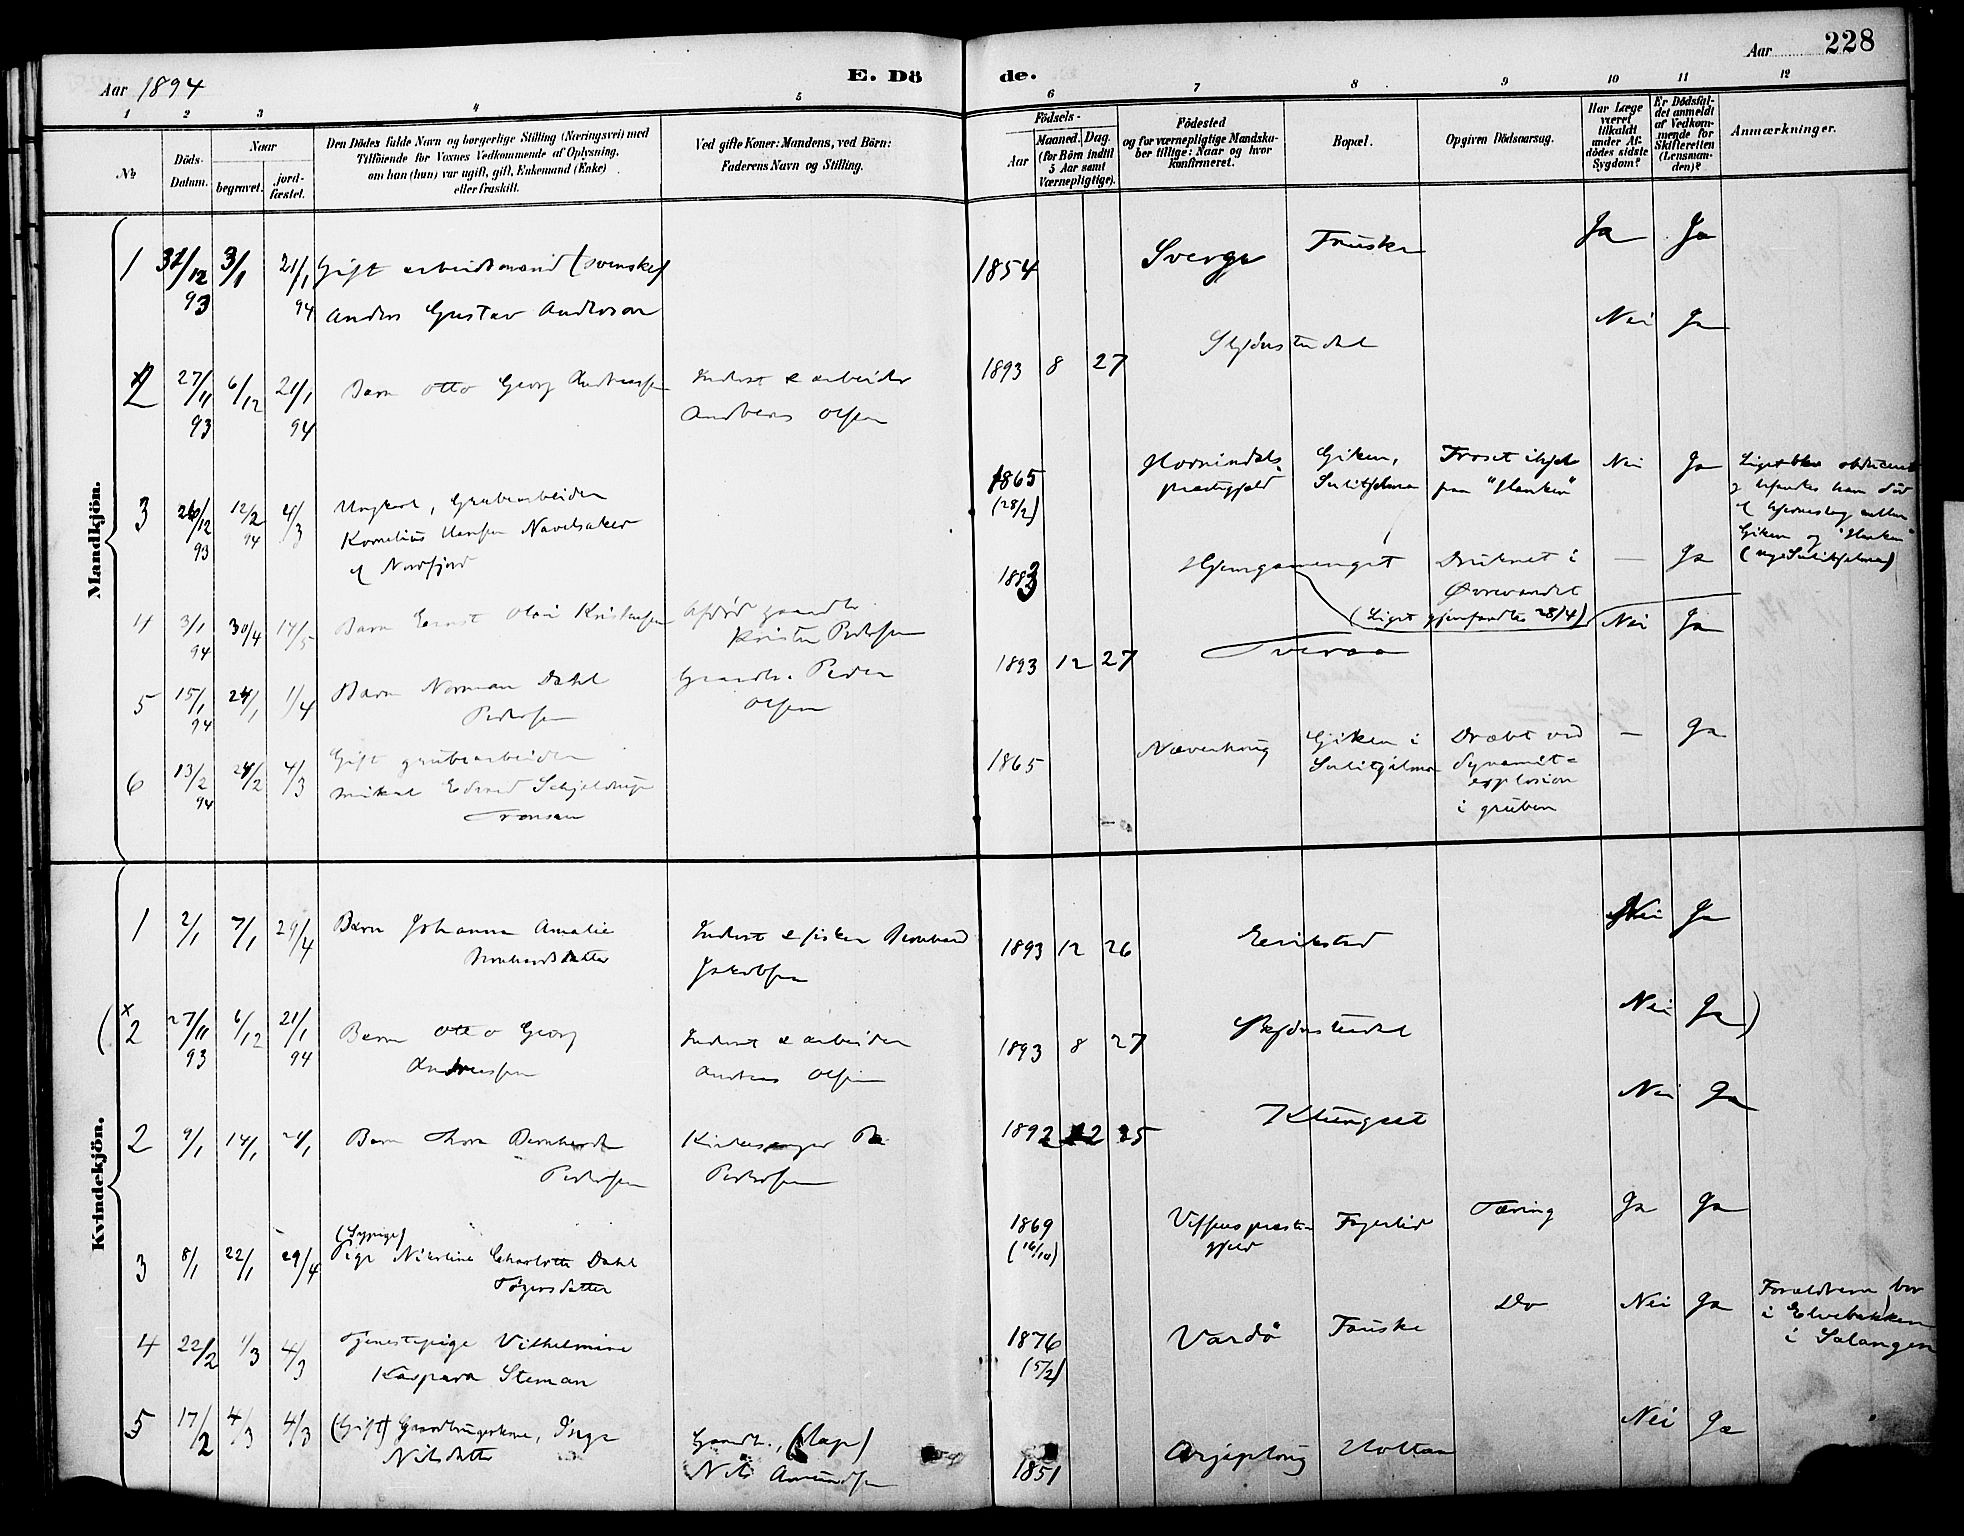 Aar 1894
E. Dö
de.
Aar 228
1 2 3 4 5 6 7 8 9 10 11 12
No
Döds-
Datum.
Naar
begravet.
jord-
fæstet.
Den Dödes fulde Navn og borgerlige Stilling (Næringsvei) med
Tilföiende for Voxnes Vedkommende af Oplysning,
om han (hun) var ugift, gift, Enkemand (Enke)
eller fraskilt.
Ved gifte Koner: Mandens, ved Börn:
Faderens Navn og Stilling.
Födsels-
Aar
Maaned. Dag.
(for Börn indtil
5 Aar samt
Værnepligtige).
Födested
og for værnepligtige Mandska-
ber tillige: Naar og hvor
konfirmeret.
Bopæl.
Opgiven Dödsaarsag.
Har Læge
været
tilkaldt
under Af-
dödes sidste
Sygdom?
Er Dödsfal-
det anmeldt
af Vedkom-
mende for
Skifteretten
(Lensman-
den)?
Anmærkninger.
Mandkjön.
1 31/12 93 3/1 21/1 94 Gift arbeidsmand (svenske)
Anders Gustav Andersson
1854 Sverge Fauske Ja Ja
2 27/11 93 6/12 21/1 94 Barn Otto Georg Andreassen
Inderst & arbeider
Andreas Olsen
1893 8 27 Skjønstudal Nei Ja
3 26/12 93 12/2 94 4/3 Ungkarl, Grubearbeider
Kornelius Hansen Navelsaker
af Nordfjord
1865
(28/2)
Hornindals
præstegjeld
Giken,
Sulitjelma
Froset ihjel
paa "Hanken"
Nei Ja
Liget blev obduceret
Giken og "Hanken"
(nye Sulitjelma)
4 3/1 94 30/4 14/5 Barn Ernst Olai Kristensen
Afdød gaardbr.
Kristen Pedersen
1883 Hjemgammenget
Druknet i
Øvrevandet
(Liget gjenfandtes 28/4)
— Ja
5 15/1 94 24/1 1/4 Barn Norman Dahl
Pedersen
Gaardbr. Peder
Olsen
1893 12 27 Tveraa Nei Ja
6 13/2 94 24/2 4/3 Gift grubearbeider
Mikal Edvard Schjeldrup
Tronsen
1865 Næverhaug
Giken i
Sulitjelma
Dræbt ved
dynamit=
explosion
i gruben
— Ja
Kvindekjön.
1 2/1 7/1 29/4 Barn Johanna Amalie
Bernhardsdatter
Inderst & fisker Bernhard
Jakobsen
1893 12 26 Erikstad Nei Ja
(x 2 27/11 93 6/12 21/1 94 Barn Otto Georg
Andreassen
Inderst & arbeider
Andreas Olsen
1893 8 27 Skjønstudal Nei Ja)
2 9/1 14/1 21/1 Barn Thora Bernharda
Pedersen
Kirkesanger
Pedersen
1892 12 25 Klungset Nei Ja
3 8/1 22/1 29/4 (Sypige)
Pige Nikoline Charlotte Dahl
Tøgersdatter
1869
(16/10)
Vefsens præste-
gjeld
Fagerlid Tæring Ja Ja
4 22/2 1/3 4/3 Tjenestepige Vilhelmine
Kaspara Steman
1876
(5/2)
Vardö Fauske Do Nei Ja
Forældrene bor
i Elvebakken
i Salangen
5 17/2 4/3 4/3 (Gift) Gaardbrugerkone, Inga
Nilsdatter
Gaardbr., (lap)
Nils Amundsen
1851 Arjeploug Holtan Nei Ja